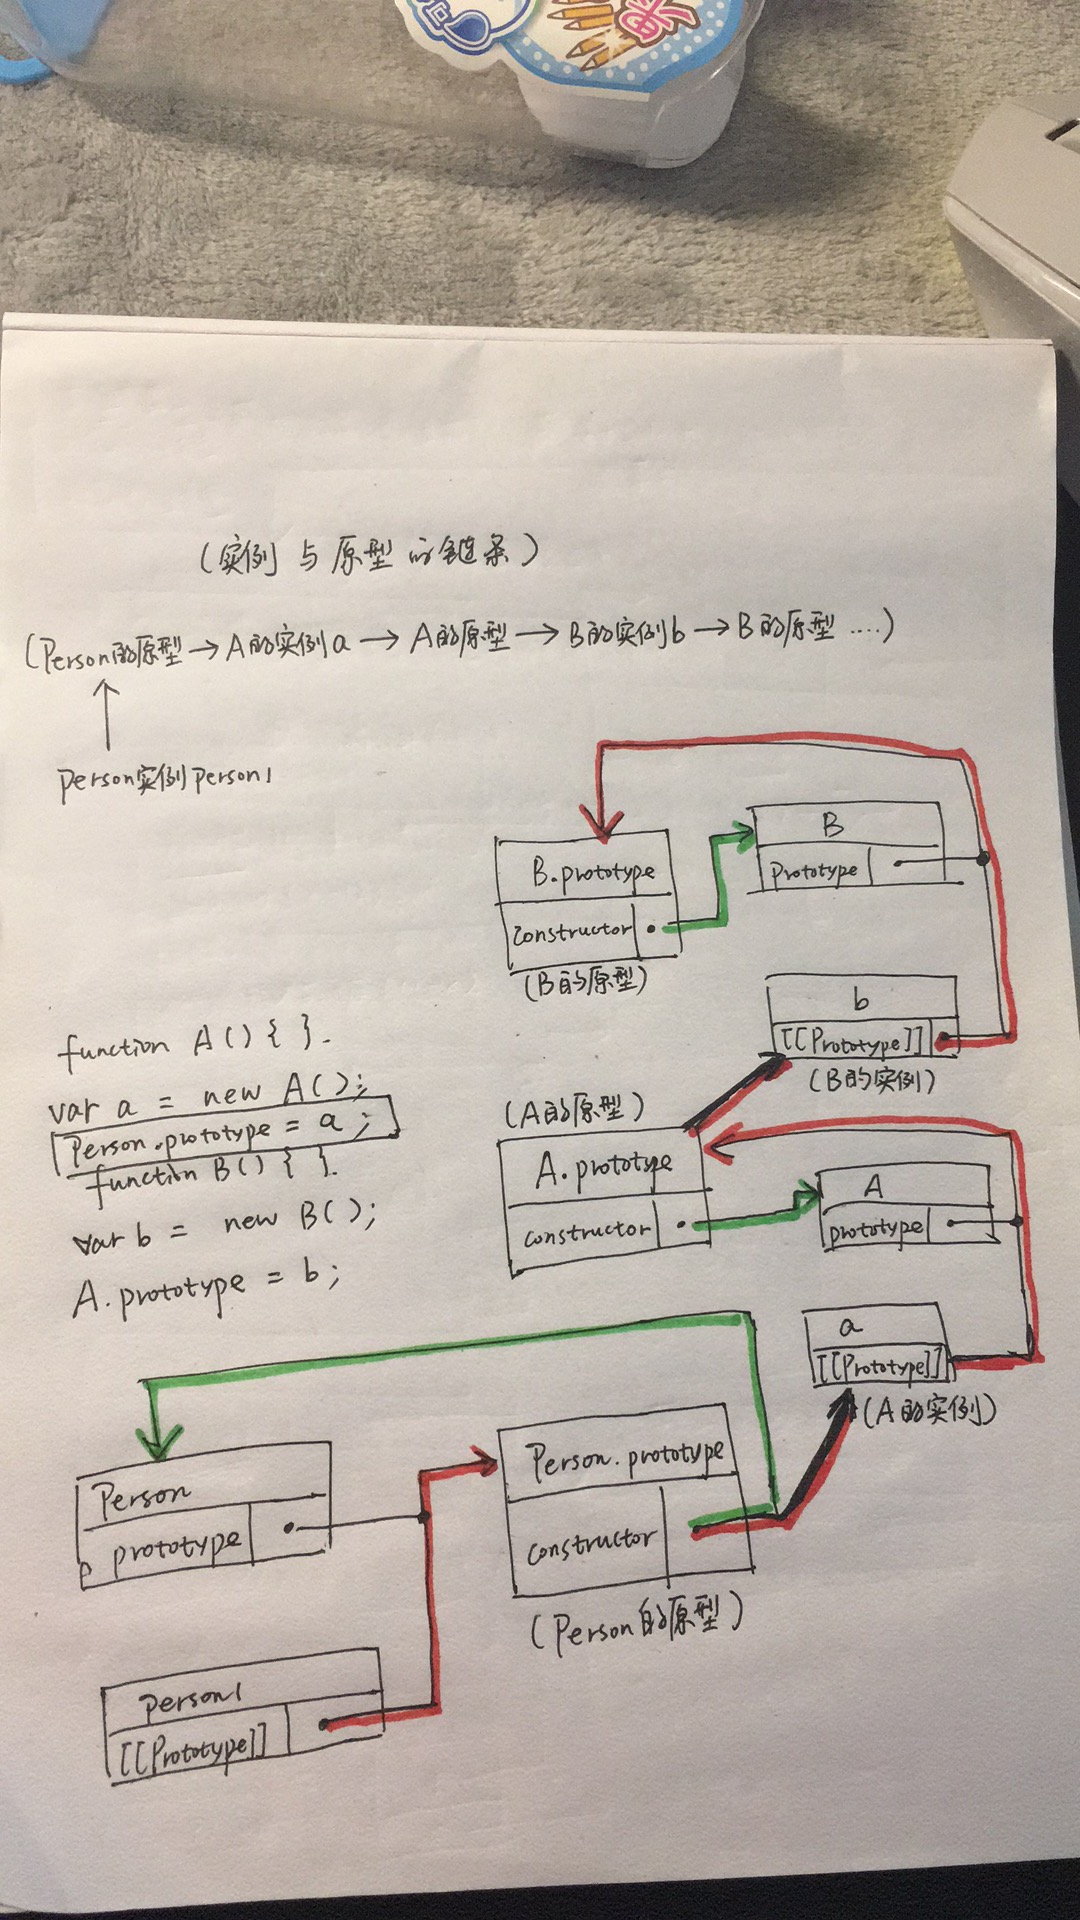 (实例与原型的链条)
(Person的原型→A的实例a→A的原型→B的实例b→B的原型....)
person实例person1
B
B.prototype
prototype
constructor
(B的原型)
b
[[Prototype]]
(B的实例)
function A(){ }.
var a = new A();
Person.prototype = a;
function B(){ }.
var b = new B();
A.prototype = b;
(A的原型)
A.prototype
constructor
A
prototype
a
[[Prototype]]
(A的实例)
Person
prototype
Person.prototype
constructor
(Person的原型)
person1
[[Prototype]]